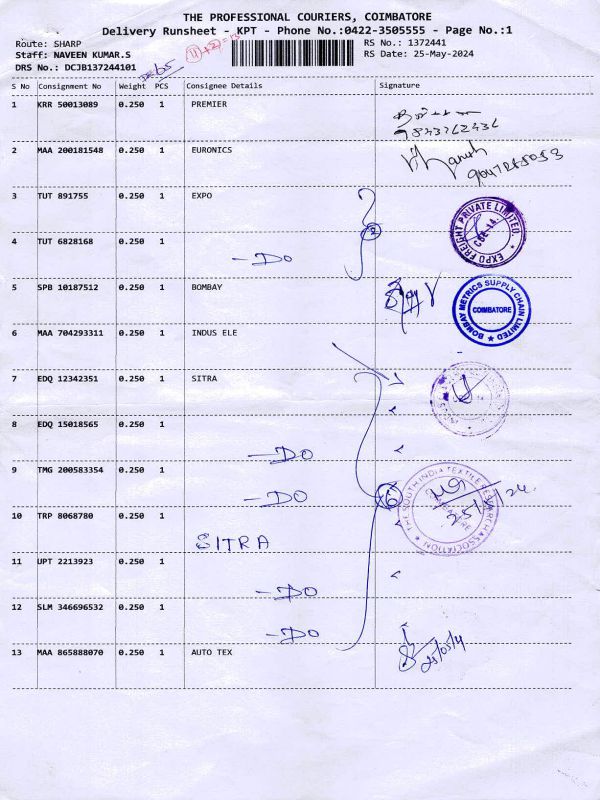 THE PROFESSIONAL COURIERS, COIMBATORE
Delivery Runsheet - KPT - Phone No.:0422-3505555 - Page No.:1
Route: SHARP
Staff: NAVEEN KUMAR.S
DRS No.: DCJB137244101
RS No.: 1372441
RS Date: 25-May-2024
65
S No Consignment No Weight PCS Consignee Details Signature
1 KRR 50013089 0.250 1 PREMIER
9843762436
2 MAA 200181548 0.250 1 EURONICS
3 TUT 891755 0.250 1 EXPO
EXPO FREIGHT PRIVATE LIMITED.
CBE-14.
2
4 TUT 6828168 0.250 1
-DO
5 SPB 10187512 0.250 1 BOMBAY
BOMBAY METRICS SUPPLY CHAIN LIMITED
COIMBATORE
6 MAA 704293311 0.250 1 INDUS ELE
7 EDQ 12342351 0.250 1 SITRA
8 EDQ 15018565 0.250 1
-DO
9 TMG 200583354 0.250 1
-DO
6
THE SOUTH INDIA TEXTILE RESEARCH ASSOCIATION
25/5/24.
10 TRP 8068780 0.250 1
SITRA
11 UPT 2213923 0.250 1
-DO
12 SLM 346696532 0.250 1
-DO
13 MAA 865888070 0.250 1 AUTO TEX
25/05/4